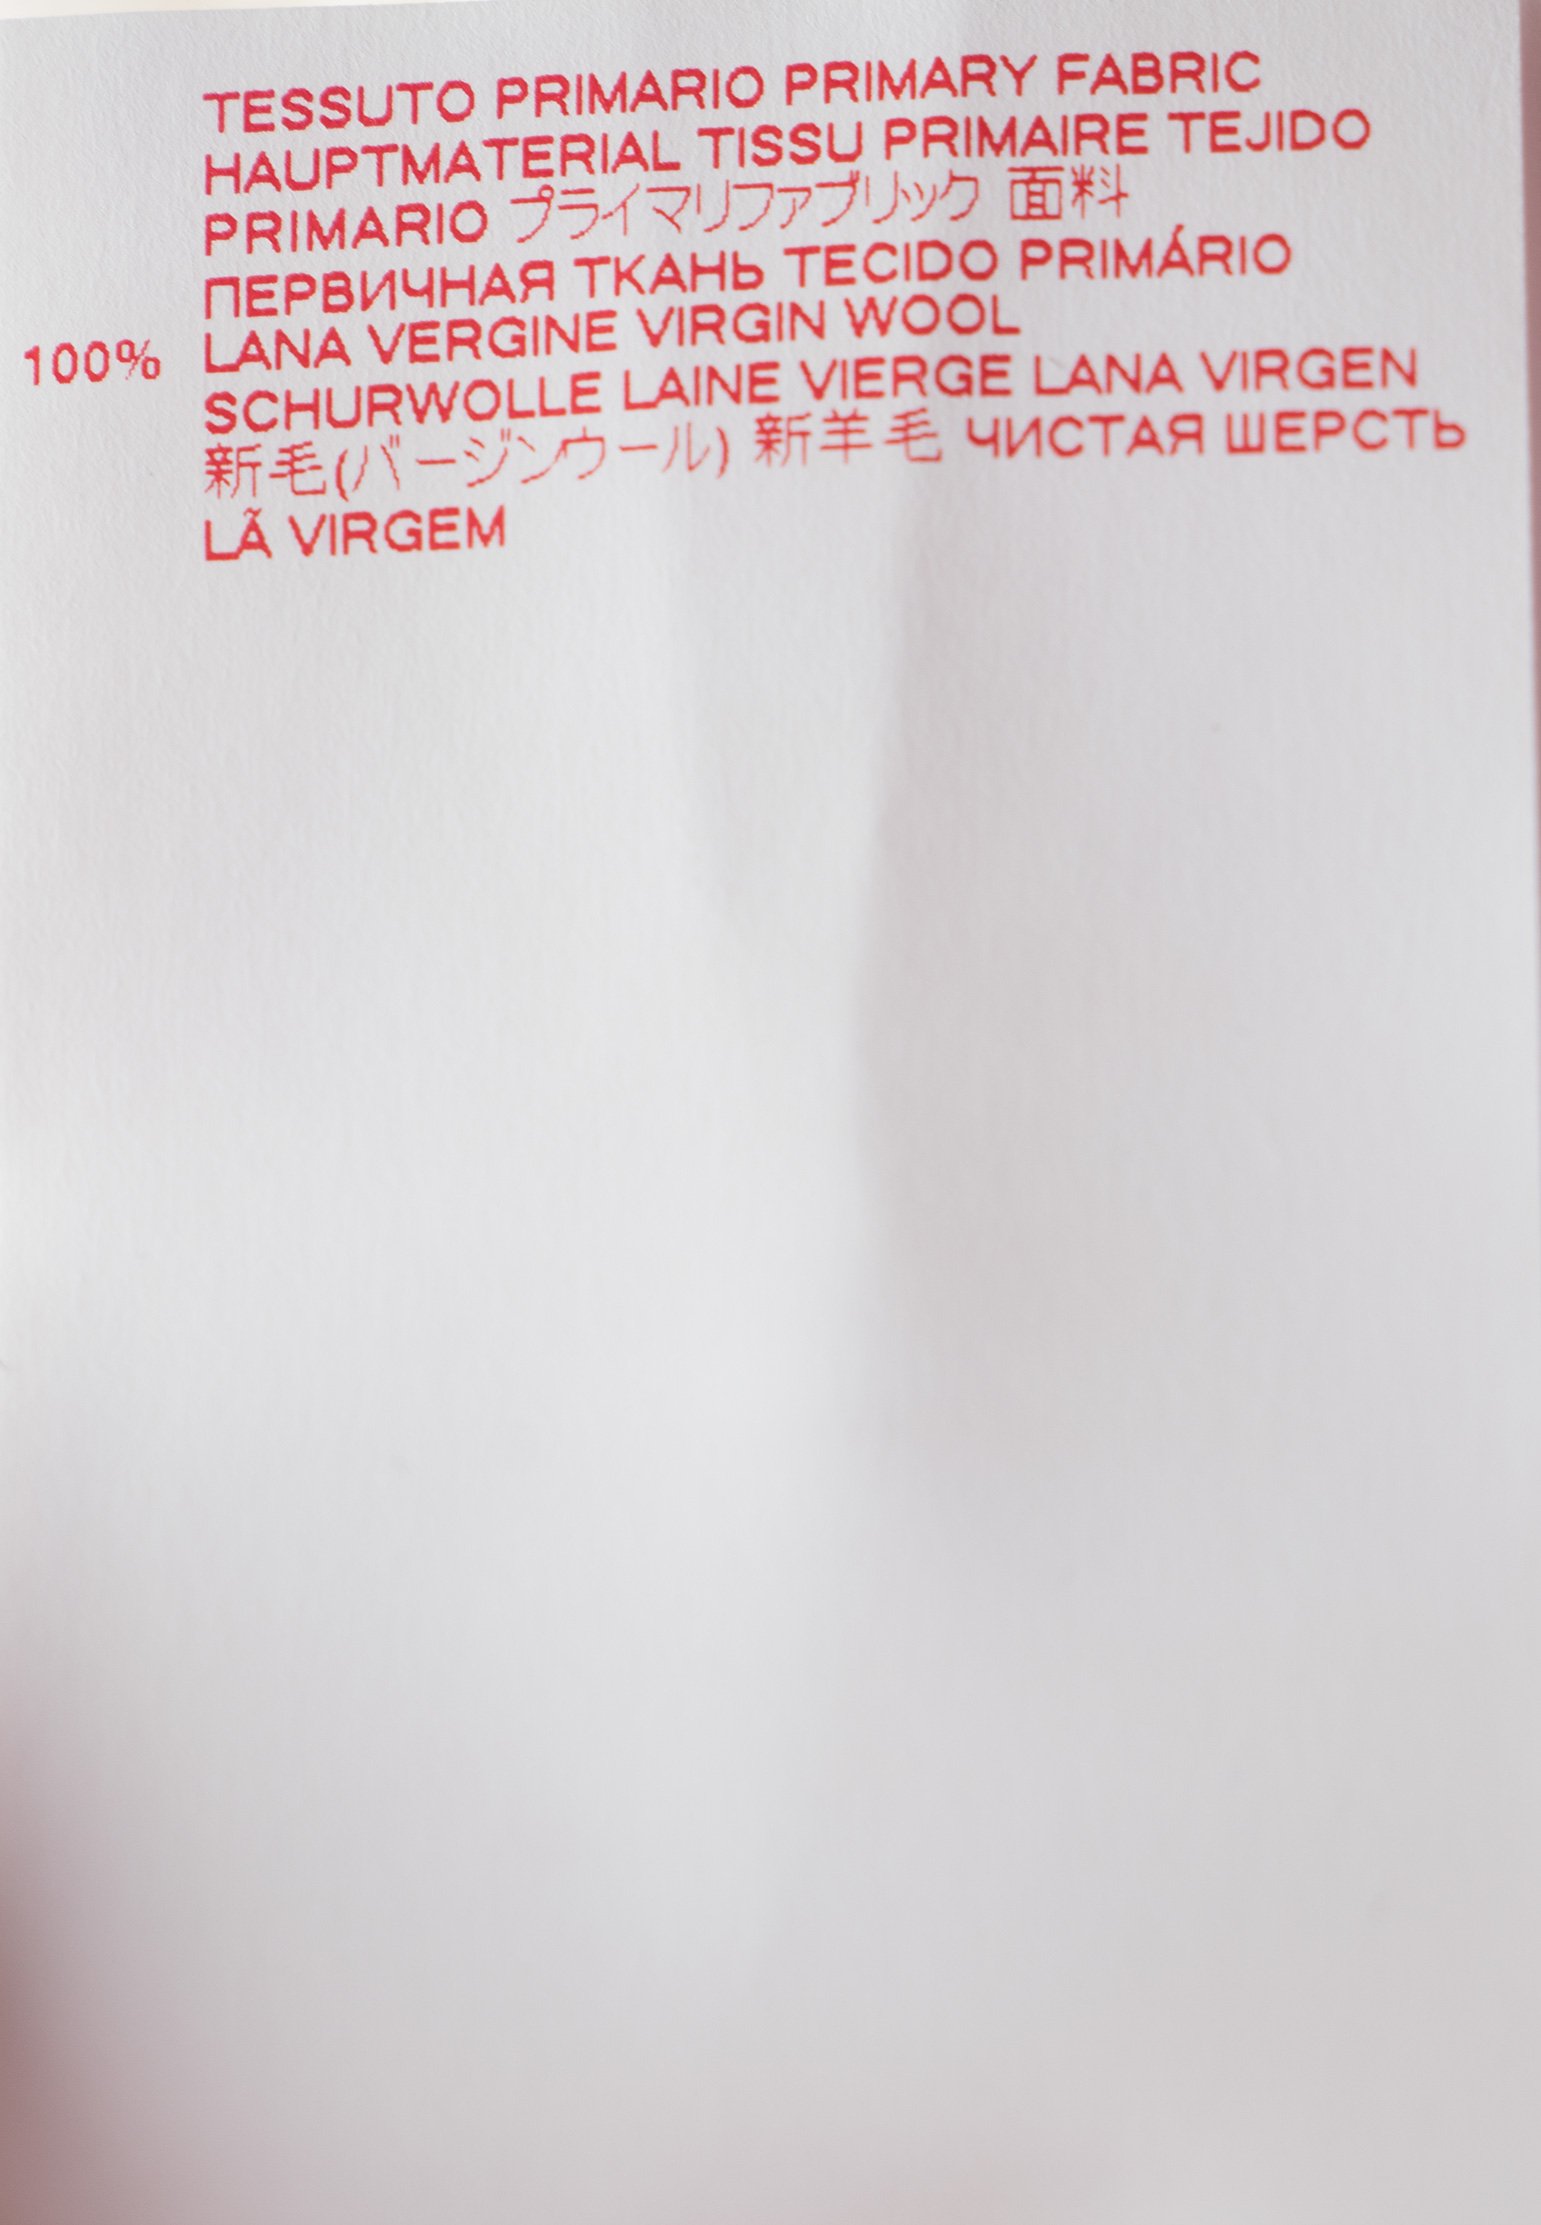 TESSUTO PRIMARIO PRIMARY FABRIC
HAUPTMATERIAL TISSU PRIMAIRE TEJIDO
PRIMARIO プライマリファブリック 面料
ПЕРВИЧНАЯ ТКАНЬ TECIDO PRIMÁRIO
100% LANA VERGINE VIRGIN WOOL
SCHURWOLLE LAINE VIERGE LANA VIRGEN
新毛(バージンウール) 新羊毛 ЧИСТАЯ ШЕРСТЬ
LÃ VIRGEM